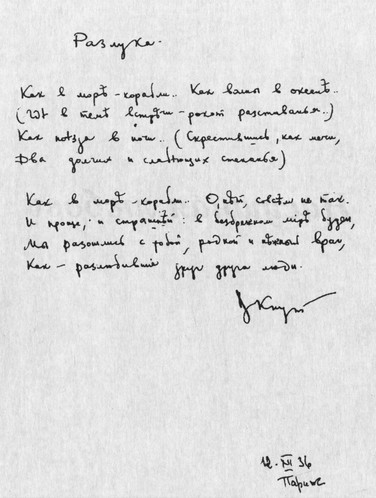 Разлука.
Какъ в морѣ - корабли.. Какъ волны в океанѣ..
(И в темѣ встрѣчи - рокот разставанья..)
Какъ поѣзда в ночи.. (Скрестившись, как мечи,
Два долгих и слабѣющих стенанья)
Какъ в морѣ - корабли.. О, нѣт, совсѣм не так.
И проще, и страшнѣй: в безбрежном мірѣ буден,
Мы разошлись с тобой, рѣдкой и нѣжный враг,
Какъ - разлюбившіе друг друга люди.
Д Кнут
12. XII 36
Париж